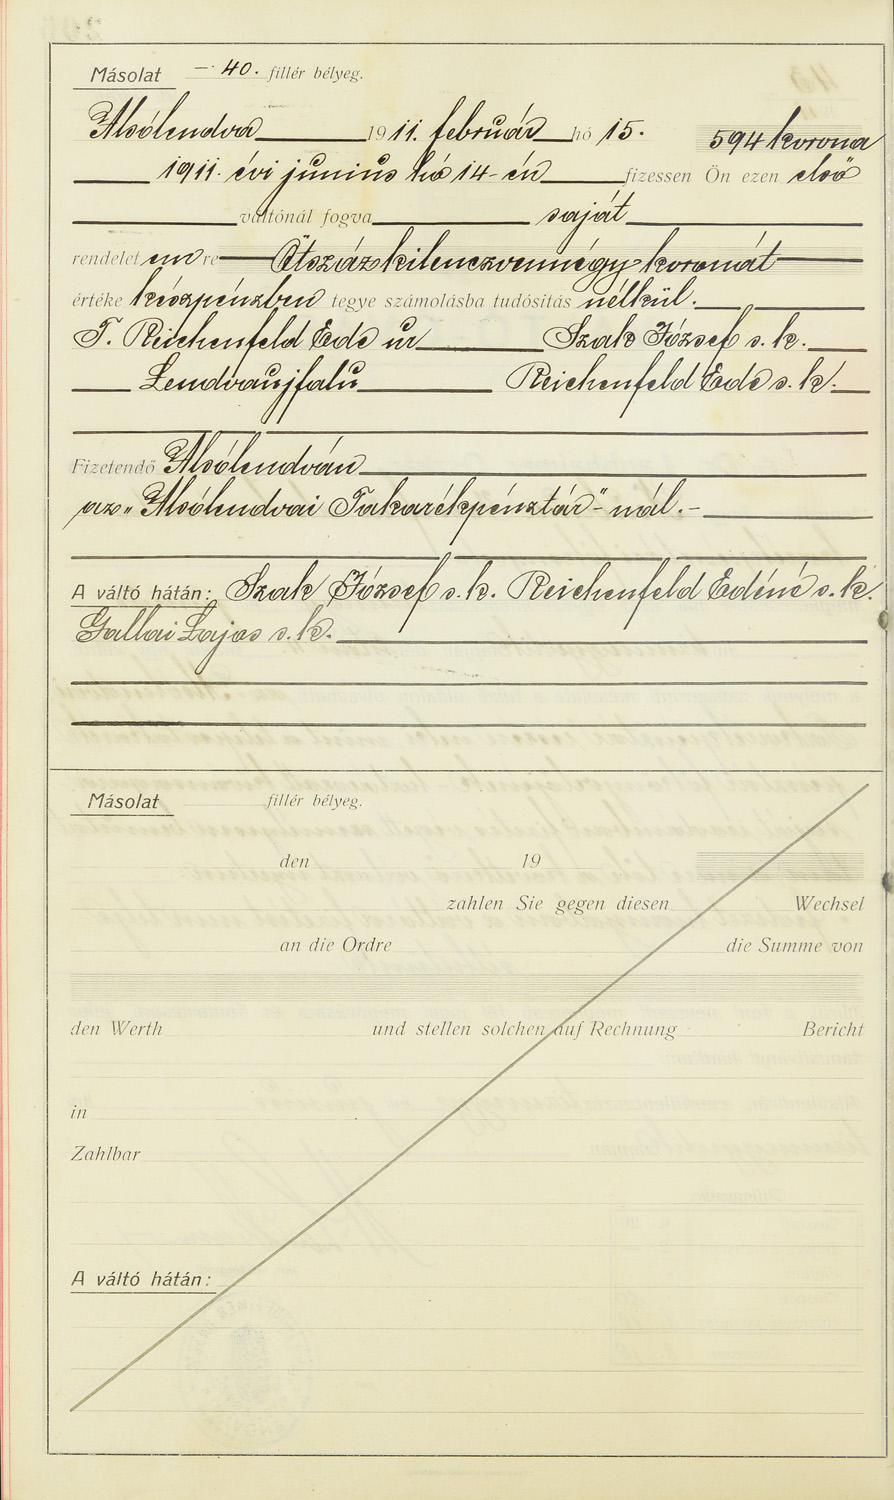 Másolat – 40. fillér bélyeg.
Alsólendva 1911. február hó 15. 594 korona
1911. évi junius hó 14-én fizessen Ön ezen első
váltónál fogva saját
rendeletemre Ötszázkilenczvennégy koronát
értéke készpénzben tegye számolásba tudósítás nélkül.
T. Reichenfeld Ede ur Szak József s. k.
Lendvaujfalu Reichenfeld Ede s. k.
Fizetendő Alsólendván
az „Alsólendvai Takarékpénztár"-nál.-
A váltó hátán: Szak József s. k. Reichenfeld Edéné s. k.
Gallai Lajos s. k.
Másolat fillér bélyeg.
den 19
zahlen Sie gegen diesen Wechsel
an die Ordre die Summe von
den Werth und stellen solchen auf Rechnung Bericht
in
Zahlbar
A váltó hátán: